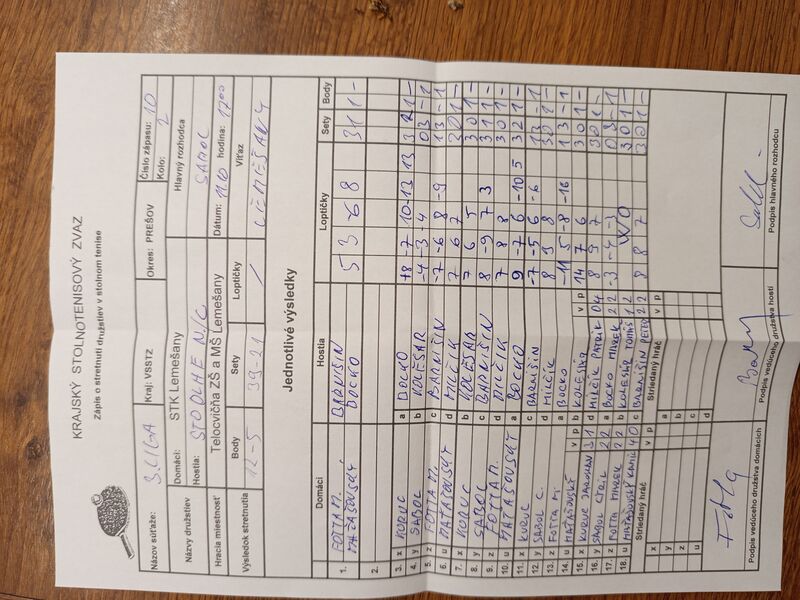 KRAJSKÝ STOLNOTENISOVÝ ZVAZ
Zápis o stretnutí družstiev v stolnom tenise
Názov súťaže: 3. LIGA Kraj: VSSTZ Okres: PREŠOV Číslo zápasu: 10
Kolo: 2
Názvy družstiev Domáci: STK Lemešany Hlavný rozhodca
Hostia: SABOL
Hracia miestnosť Telocvičňa ZŠ a MŠ Lemešany Dátum: hodina: 1700
Výsledok stretnutia Body Sety Loptičky Víťaz
12-5 39-21 / LEMEŠANY
Jednotlivé výsledky
Domáci Hostia Loptičky Sety Body
1. FOTTA M. BARNIŠIN 5 3 -6 8 3 1 1 -
MAŤAŠOVSKÝ BOCKO
2.
3. x KURUC a BOCKO
4. y SABOL b KOLESÁR -4 -3 -4 0 3 - 1
5. z FOTTA M. c BARNIŠIN -7 -6 8 -9 1 3 - 1
6. u MAŤAŠOVSKÝ d MILČIK 7 6 7
7. x KURUC b KOLESÁR 7 6 5 3 0 1 -
8. y SABOL c BARNIŠIN 8 -9 7 3 3 1 1 -
9. z FOTTA M. d MILČIK 7 8 8 3 0 1 -
10. u MAŤAŠOVSKÝ a BOCKO 9 -7 6 -10 5 3 2 1 -
11. x KURUC c BARNIŠIN -7 -5 6 -6 1 3 - 1
12. y SABOL C. d MILČIK
13. z FOTTA M. a BOCKO -11 5 -8 -16 1 3 - 1
14. u MAŤAŠOVSKÝ b KOLESÁR 14 7 6 3 0 1 -
v p v p
15. x KURUC JAROSLAV 3 1 d MILČIK PATRIK 0 4 8 9 7 3 0 1 -
16. y SABOL CYRIL 2 2 a BOCKO MAREK 2 2 -3 -4 -3 0 3 - 1
17. z FOTTA MAREK 2 2 b KOLESÁR TOMÁŠ 1 2 W/O 3 0 1 -
18. u MAŤAŠOVSKÝ KAMIL 4 0 c BARNIŠIN PETER 2 2 8 8 7 3 0 1 -
Striedaný hráč v p Striedaný hráč v p
x a
y b
z c
u d
Podpis vedúceho družstva domácich Podpis vedúceho družstva hostí Podpis hlavného rozhodcu